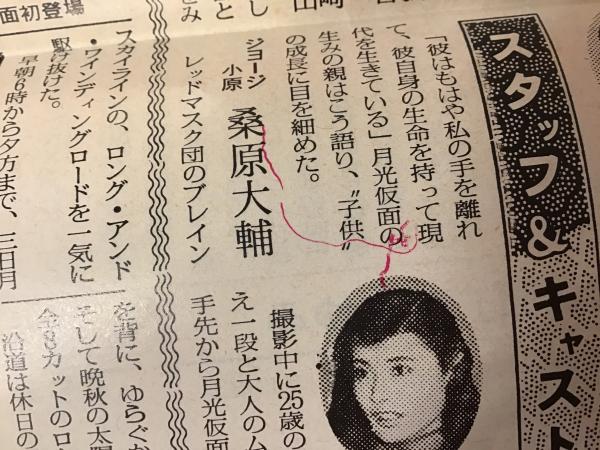 スタッフ&キャスト
「彼はもはや私の手を離れ
て、彼自身の生命を持って現
代を生きている」月光仮面の
生みの親はこう語り、〝子供〟
の成長に目を細めた。
ジョージ
小原
桑原大輔
レッドマスク団のブレイン
スカイラインの、ロング・アンド
・ワインディングロードを一気に
駆け抜けた。
早朝6時から夕方まで、三日月
面初登場
撮影中に25歳の
え一段と大人のム
手先から月光仮面
を背に、ゆらぐか
そして晩秋の太陽
沿道は休日の